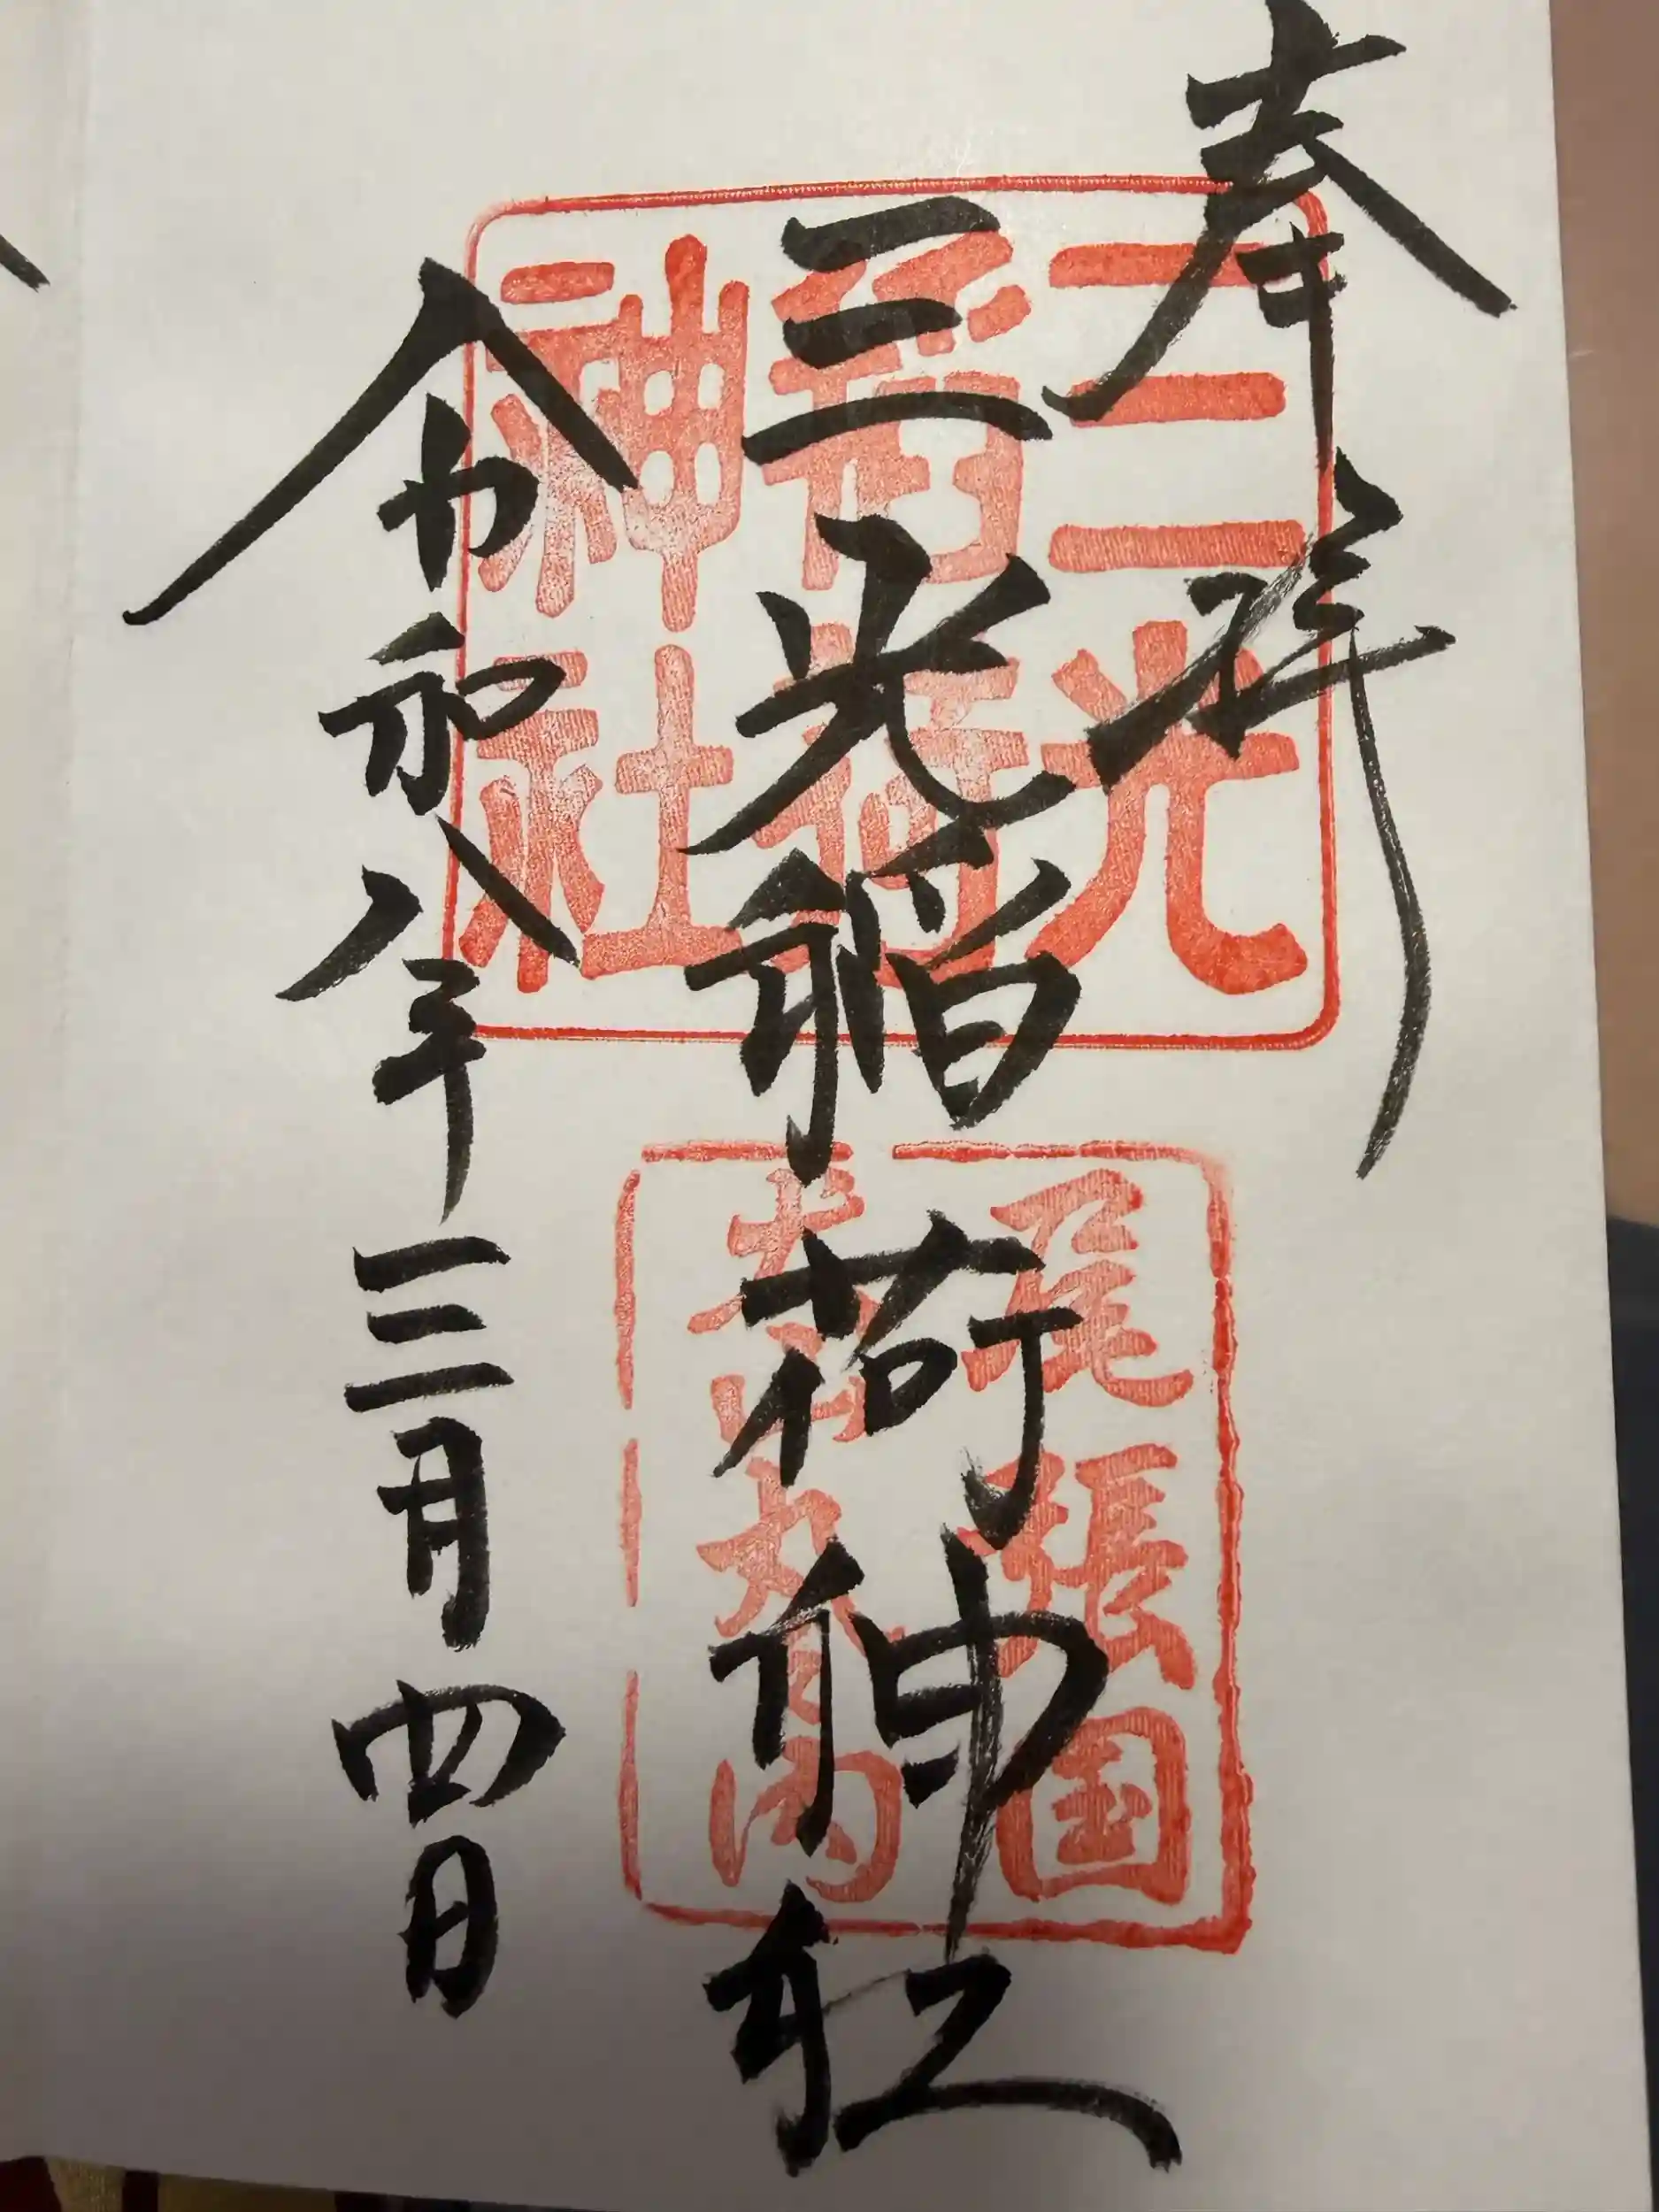 奉拝
三光稲荷神社
令和八年三月四日
三光
稲荷
神社
尾張国
犬山丸の内